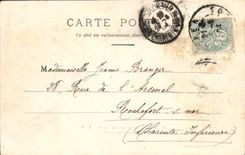 CARTE PO
Ce côté est exclusivement
Mademoiselle Jeanne Branger
28 Rue de l'Arsenal
Rochefort s mer
(Charente Inférieure)